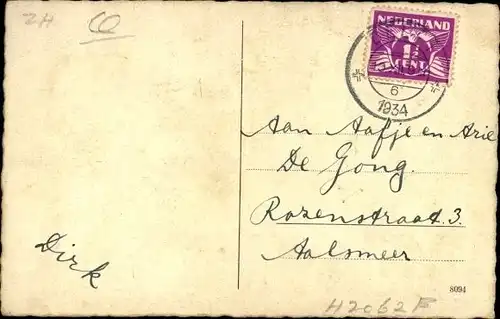 ZH
NEDERLAND
1½
CENT
6
1934
Aan Aafje en Arie
De Jong.
Rozenstraat 3.
Aalsmeer
Dirk
8094
H2062F